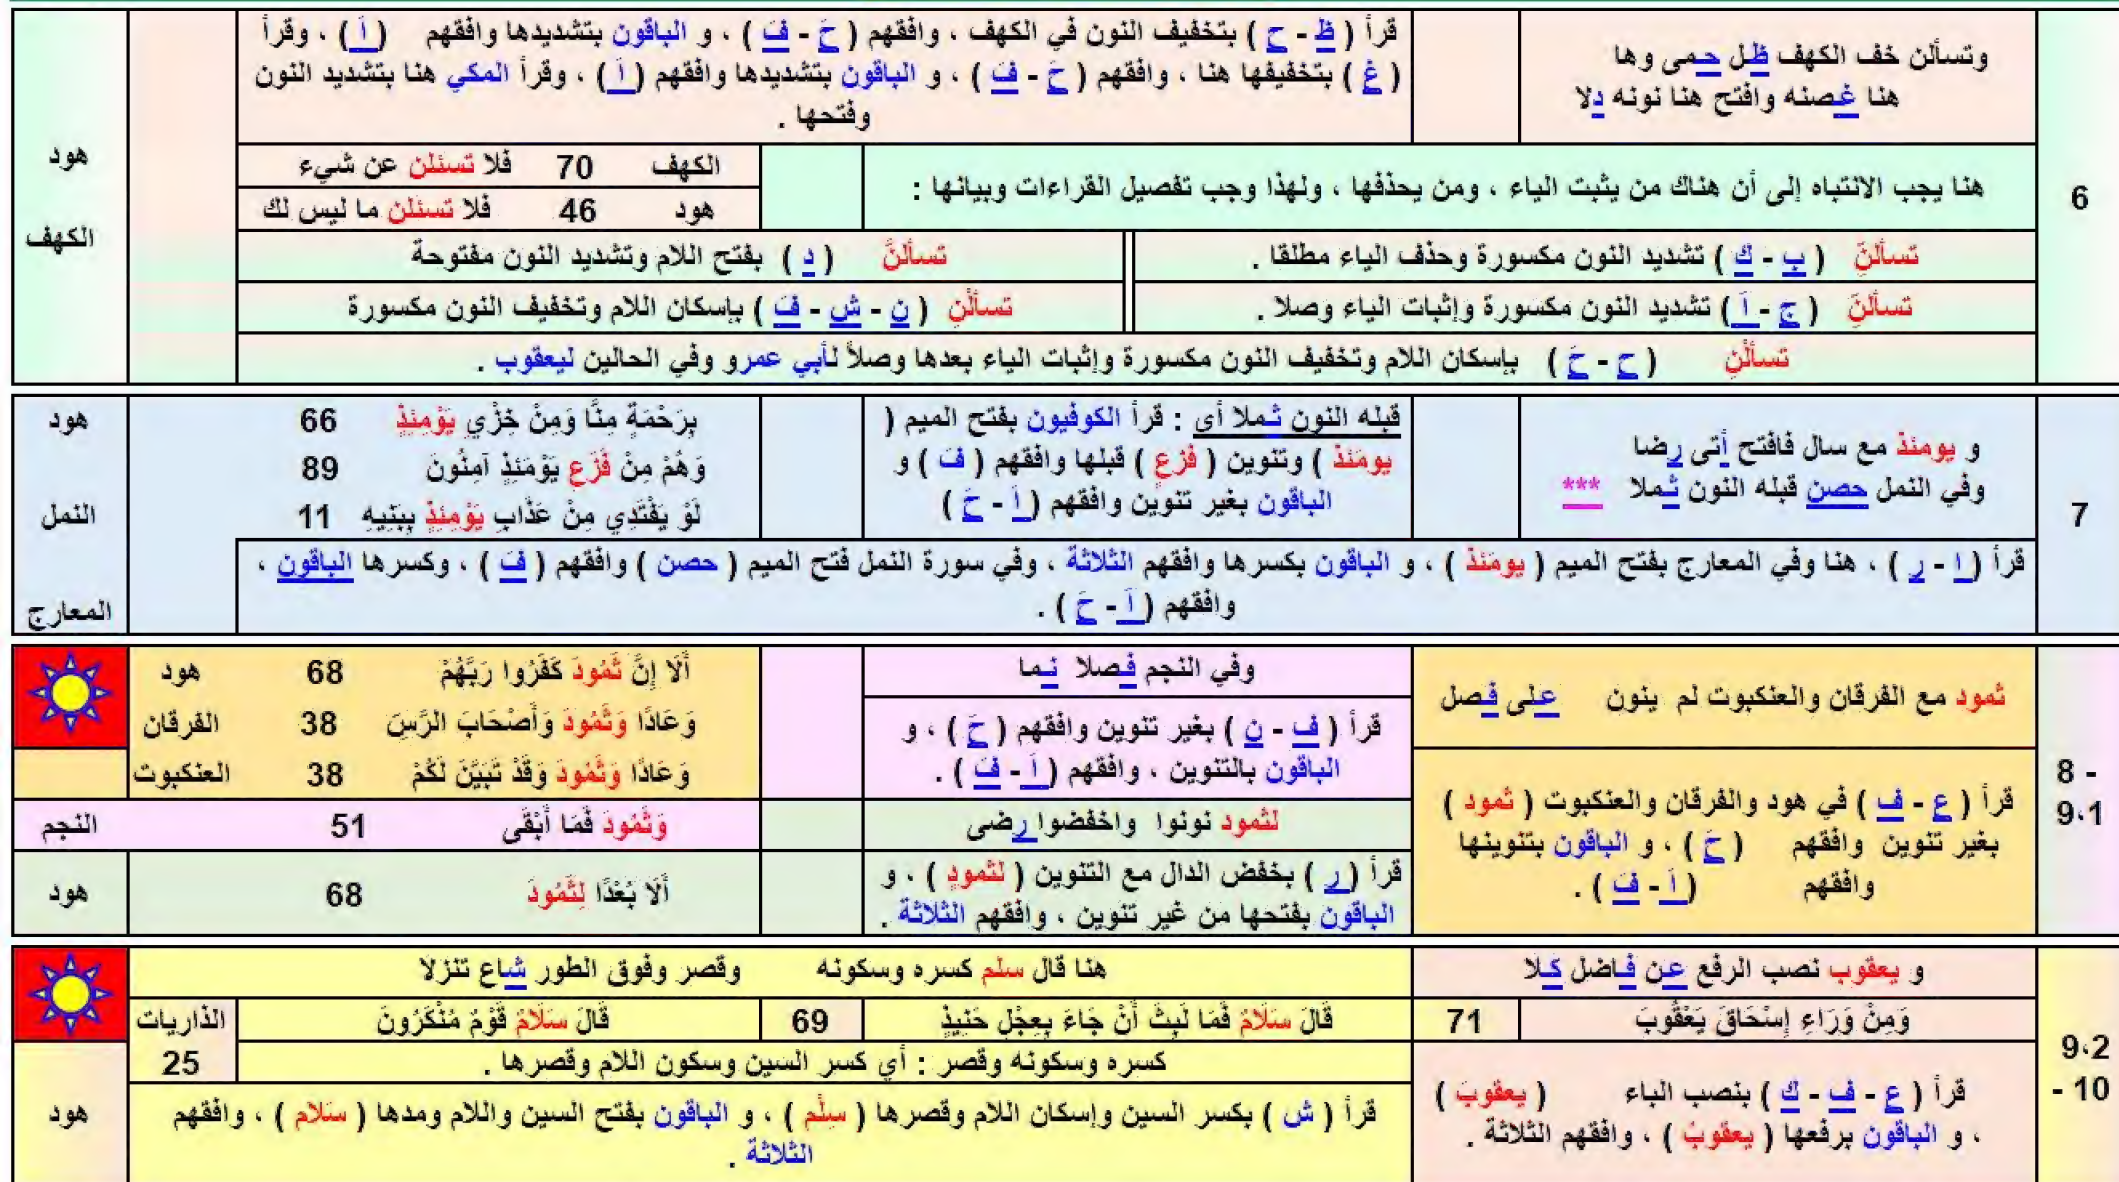 6
وتسألن خف الكهف ظل حمى وها
هنا غصنه وافتح هنا نونه دلا
قرأ ( ظ - ح ) بتخفيف النون في الكهف ، وافقهم ( حَ - فَ ) ، و الباقون بتشديدها وافقهم ( اَ ) ، وقرأ
( غ ) بتخفيفها هنا ، وافقهم ( حَ - فَ ) ، و الباقون بتشديدها وافقهم ( اَ ) ، وقرأ المكي هنا بتشديد النون
وفتحها .
هود
الكهف
هنا يجب الانتباه إلى أن هناك من يثبت الياء ، ومن يحذفها ، ولهذا وجب تفصيل القراءات وبيانها :
الكهف 70 فلا تسئلن عن شيء
هود 46 فلا تسئلن ما ليس لك
تسألنِّ ( ب - ك ) تشديد النون مكسورة وحذف الياء مطلقا .
تسألنَّ ( د ) بفتح اللام وتشديد النون مفتوحة
تسألنِّ ( ج - اَ ) تشديد النون مكسورة وإثبات الياء وصلا .
تسألْنِ ( ن - ش - فَ ) بإسكان اللام وتخفيف النون مكسورة
تسألْنِ ( ح - حَ ) بإسكان اللام وتخفيف النون مكسورة وإثبات الياء بعدها وصلاً لأبي عمرو وفي الحالين ليعقوب .
7
و يومئذ مع سال فافتح أتى رضا
وفي النمل حصن قبله النون ثملا ***
قبله النون ثملا أي : قرأ الكوفيون بفتح الميم (
يومَئذ ) وتنوين ( فزعٍ ) قبلها وافقهم ( فَ ) و
الباقون بغير تنوين وافقهم ( اَ - حَ )
بِرَحْمَةٍ مِنَّا وَمِنْ خِزْيِ يَوْمِئِذٍ 66 هود
وَهُمْ مِنْ فَزَعٍ يَوْمَئِذٍ آمِنُونَ 89 النمل
لَوْ يَفْتَدِي مِنْ عَذَابِ يَوْمِئِذٍ بِبَنِيهِ 11 المعارج
قرأ ( ا - ر ) ، هنا وفي المعارج بفتح الميم ( يومَئذ ) ، و الباقون بكسرها وافقهم الثلاثة ، وفي سورة النمل فتح الميم ( حصن ) وافقهم ( فَ ) ، وكسرها الباقون ،
وافقهم ( اَ - حَ ) .
8 -
9،1
ثمود مع الفرقان والعنكبوت لم ينون على فصل
قرأ ( ع - ف ) في هود والفرقان والعنكبوت ( ثمود )
بغير تنوين وافقهم ( حَ ) ، و الباقون بتنوينها
وافقهم ( اَ - فَ ) .
وفي النجم فصلا نما
قرأ ( ف - ن ) بغير تنوين وافقهم ( حَ ) ، و
الباقون بالتنوين ، وافقهم ( اَ - فَ ) .
لثمود نونوا واخفضوا رضى
قرأ ( ر ) بخفض الدال مع التنوين ( لثمودٍ ) ، و
الباقون بفتحها من غير تنوين ، وافقهم الثلاثة .
أَلَا إِنَّ ثَمُودَ كَفَرُوا رَبَّهُمْ 68 هود
وَعَادًا وَثَمُودَ وَأَصْحَابَ الرَّسِّ 38 الفرقان
وَعَادًا وَثَمُودَ وَقَدْ تَبَيَّنَ لَكُمْ 38 العنكبوت
وَثَمُودَ فَمَا أَبْقَى 51 النجم
أَلَا بُعْدًا لِثَمُودَ 68 هود
9،2
- 10
و يعقوب نصب الرفع عن فاضل كلا
وَمِنْ وَرَاءِ إِسْحَاقَ يَعْقُوبَ 71
قرأ ( ع - ف - ك ) بنصب الباء ( يعقوبَ )
، و الباقون برفعها ( يعقوبُ ) ، وافقهم الثلاثة .
هنا قال سلم كسره وسكونه وقصر وفوق الطور شاع تنزلا
قَالَ سَلَامٌ فَمَا لَبِثَ أَنْ جَاءَ بِعِجْلٍ حَنِيذٍ 69
قَالَ سَلَامٌ قَوْمٌ مُنْكَرُونَ الذاريات 25
كسره وسكونه وقصر : أي كسر السين وسكون اللام وقصرها .
قرأ ( ش ) بكسر السين وإسكان اللام وقصرها ( سِلْم ) ، و الباقون بفتح السين واللام ومدها ( سَلام ) ، وافقهم
الثلاثة .
هود